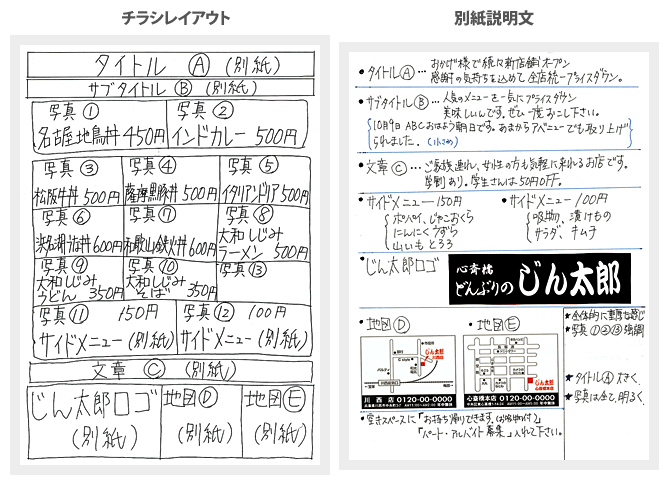 チラシレイアウト
タイトル Ⓐ (別紙)
サブタイトル Ⓑ (別紙)
写真① 写真②
名古屋地鳥丼 450円 インドカレー 500円
写真③ 写真④ 写真⑤
松阪牛丼 500円 薩摩黒豚丼 500円 イタリアンドリア 500円
写真⑥ 写真⑦ 写真⑧
浜名湖うな丼 600円 和歌山鉄火丼 600円 大和しじみ
ラーメン 500円
写真⑨ 写真⑩ 写真⑬
大和しじみ 大和しじみ
うどん 350円 そば 350円
写真⑪ 150円 写真⑫ 100円
サイドメニュー (別紙) サイドメニュー (別紙)
文章 Ⓒ (別紙)
じん太郎ロゴ 地図Ⓓ 地図Ⓔ
(別紙) (別紙) (別紙)
別紙説明文
•タイトルⒶ… おかげ様で続々新店舗オープン
感謝の気持ちを込めて全店統一プライスダウン。
•サブタイトルⒷ… 人気のメニューを一気にプライスダウン
美味しいんです。ぜひ一度おこし下さい。
10月9日ABCおはよう朝日です。あまからアベニューでも取り上げ
られました。(小さめ)
•文章Ⓒ… ご家族連れ、女性の方も気軽に来れるお店です。
学割あり。学生さんは50円OFF。
•サイドメニュー 150円 •サイドメニュー 100円
ポパイ、じゃこおくら 吸物、漬けもの
にんにくうずら サラダ、キムチ
山いもとろろ
•じん太郎ロゴ 心斎橋
どんぶりの じん太郎
•地図Ⓓ •地図Ⓔ
じん太郎
じん太郎
川西店 0120-00-0000
心斎橋本店 0120-00-0000
★全体的に
★写真①②③
★タイトルⒶ大きく。
★写真は全て明るく。
•空きスペースに「お持ち帰りできます。
「パート・アルバイト募集」入れて下さい。